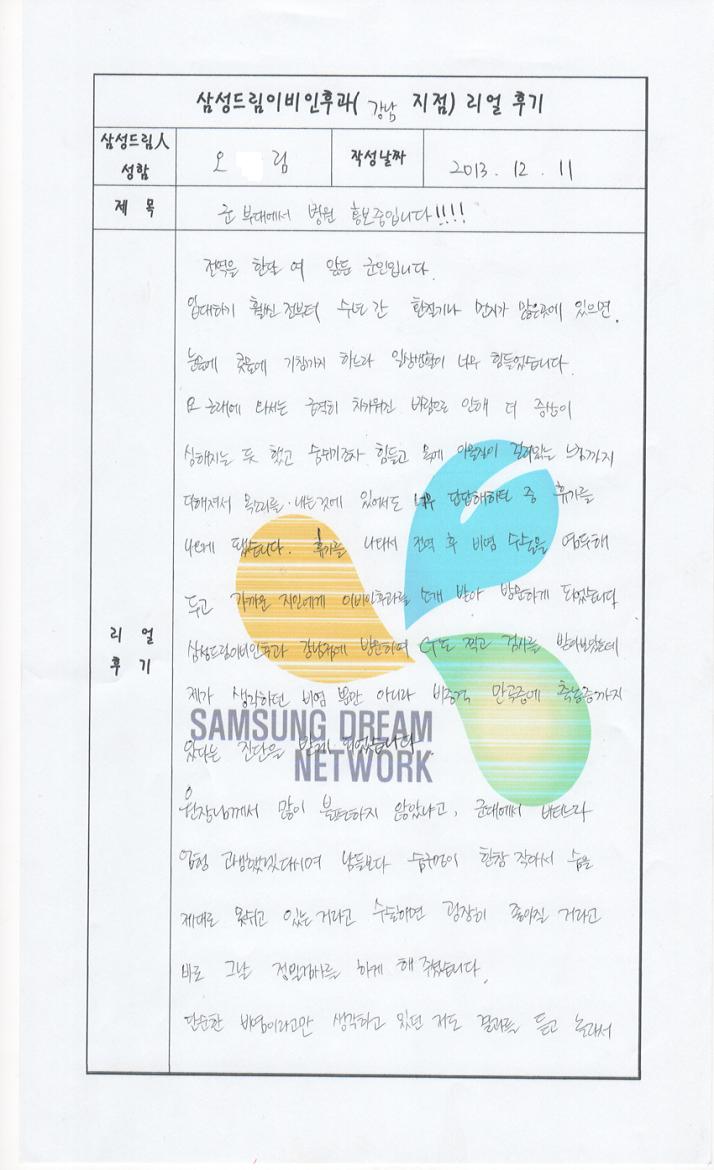 삼성드림이비인후과( 강남 지점) 리얼 후기
삼성드림人 성함
오 림
작성날짜
2013. 12. 11
제 목
군 부대에서 병원 홍보중입니다!!!!
리 얼
후 기
전역을 한달 여 앞둔 군인입니다.
입대하기 훨씬 전부터 수년 간 환절기나 먼지가 많은곳에 있으면,
눈물에 콧물에 기침까지 하느라 일상생활이 너무 힘들었습니다.
요 근래에 와서는 급격히 차가워진 바람으로 인해 더 증상이
심해지는 듯 했고 숨쉬기조차 힘들고 목에 이물질이 걸려있는 느낌까지
더해져서 목소리를 내는것에 있어서도 너무 답답해하던 중 휴가를
나오게 됐습니다. 휴가를 나와서 전역 후 비염 수술을 염두해
두고 가까운 지인에게 이비인후과를 소개 받아 방문하게 되었습니다
삼성드림이비인후과 강남점에 방문하여 CT도 찍고 검사를 받아보았는데
제가 생각하던 비염 뿐만 아니라 비중격 만곡증에 축농증까지
있다는 진단을 받게 되었습니다.
SAMSUNG DREAM
NETWORK
원장님께서 많이 불편하지 않았냐고, 군대에서 버티느라
엄청 고생했겠다시며 남들보다 숨구멍이 한참 작아서 숨을
제대로 못쉬고 있는 거라고 수술하면 굉장히 좋아질 거라고
바로 그날 정밀검사를 하게 해 주셨습니다.
단순한 비염이라고만 생각하고 있던 저도 결과를 듣고 놀라서